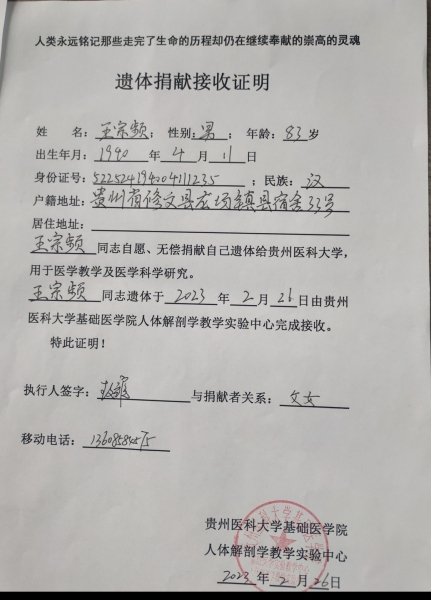 人类永远铭记那些走完了生命的历程却仍在继续奉献的崇高的灵魂
遗体捐献接收证明
姓 名：王宗频；性别：男；年龄：83 岁
出生年月：1940 年 4 月 11 日
身份证号：522524194004111235；民族：汉
户籍地址：贵州省修文县広场镇县宿舍33号
居住地址：
王宗频 同志自愿、无偿捐献自己遗体给贵州医科大学，
用于医学教学及医学科学研究。
王宗频 同志遗体于 2023 年 2 月 26 日由贵州
医科大学基础医学院人体解剖学教学实验中心完成接收。
特此证明！
执行人签字： 与捐献者关系：父女
移动电话：
贵州医科大学基础医学院
人体解剖学教学实验中心
2023 年 2 月 26 日